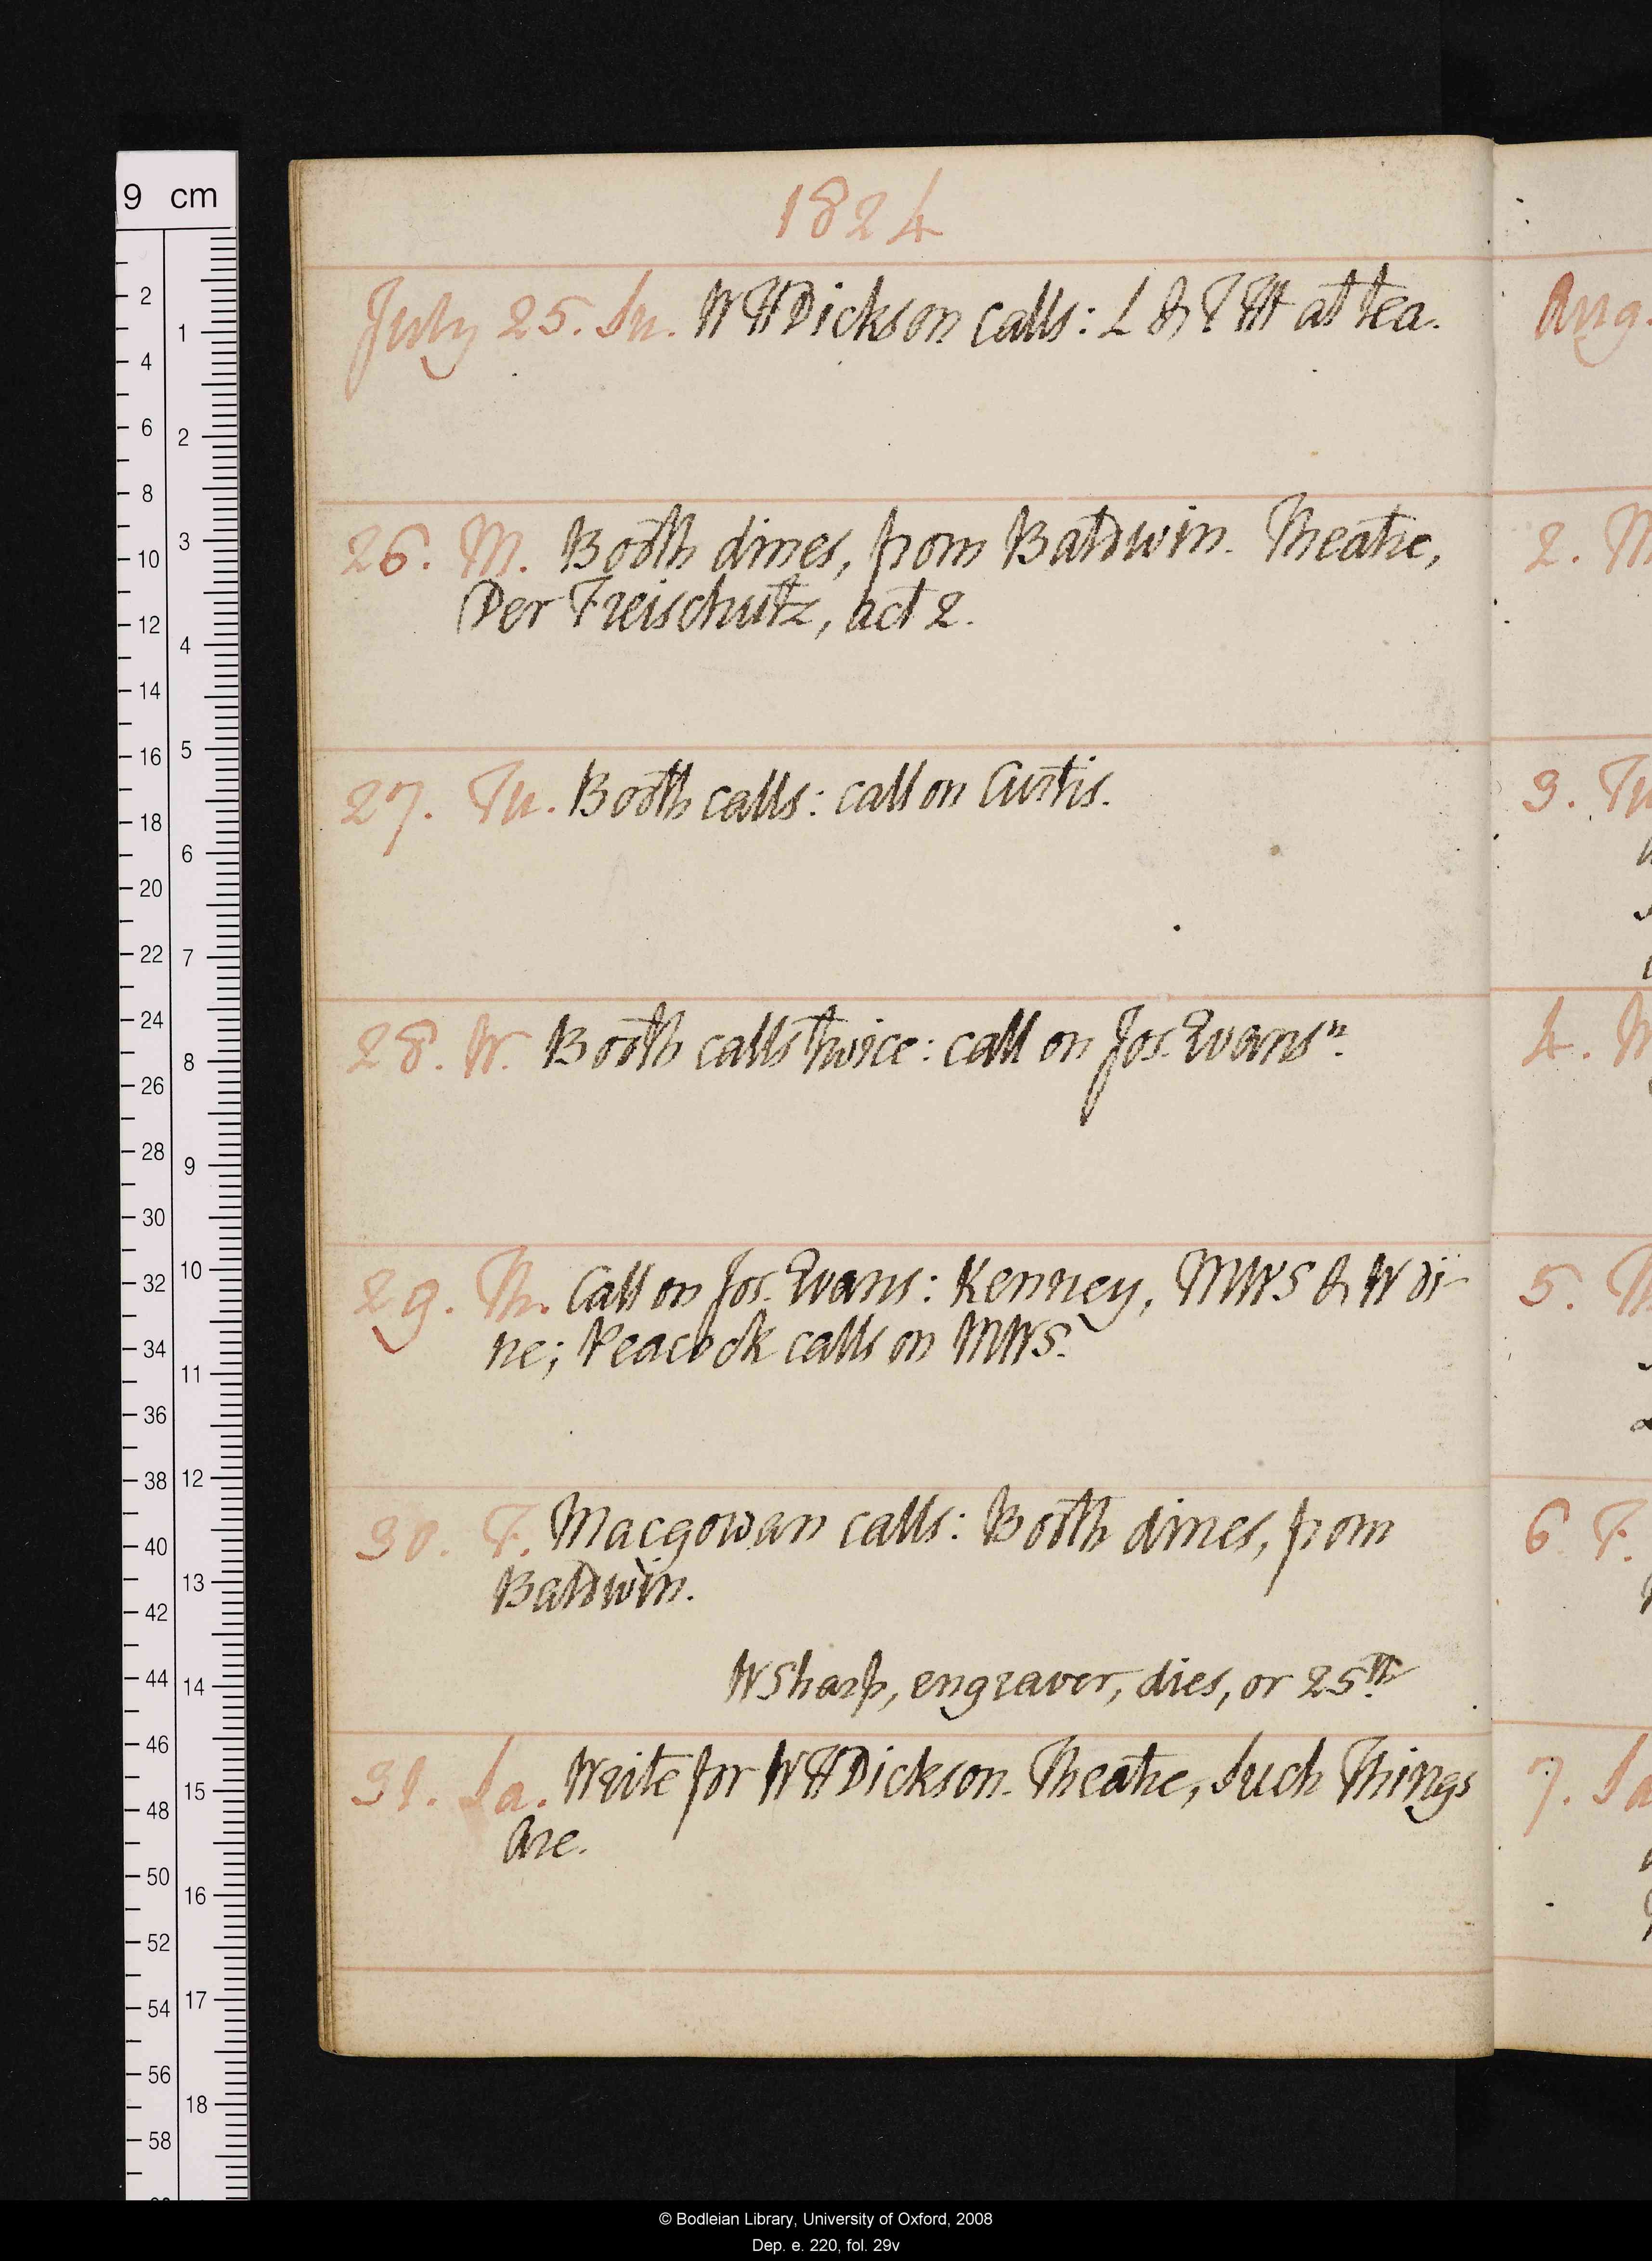 1824
July 25. Su. W H Dickson calls: L & T H at tea.
26. M. Booth dines, from Baldwin. Theatre,
Der Freischutz, act 2.
27. Tu. Booth calls: call on Curtis.
28. W. Booth calls twice: call on Jos. Evans n.
29. Th. Call on Jos. Evans: Kenney, MWS & W di-
ne; Peacock calls on MWS.
30. F. Macgowan calls: Booth dines, from
Baldwin.
W Sharp, engraver, dies, or 25th
31. Sa. Write for W H Dickson. Theatre, Such Things
Are.
Aug.
2. M
3. Tu
4.
5.
6 F.
7. Sa
9 cm
2
4
6
8
10
12
14
16
18
20
22
24
26
28
30
32
34
36
38
40
42
44
46
48
50
52
54
56
58
1
2
3
4
5
6
7
8
9
10
11
12
13
14
15
16
17
18
© Bodleian Library, University of Oxford, 2008
Dep. e. 220, fol. 29v